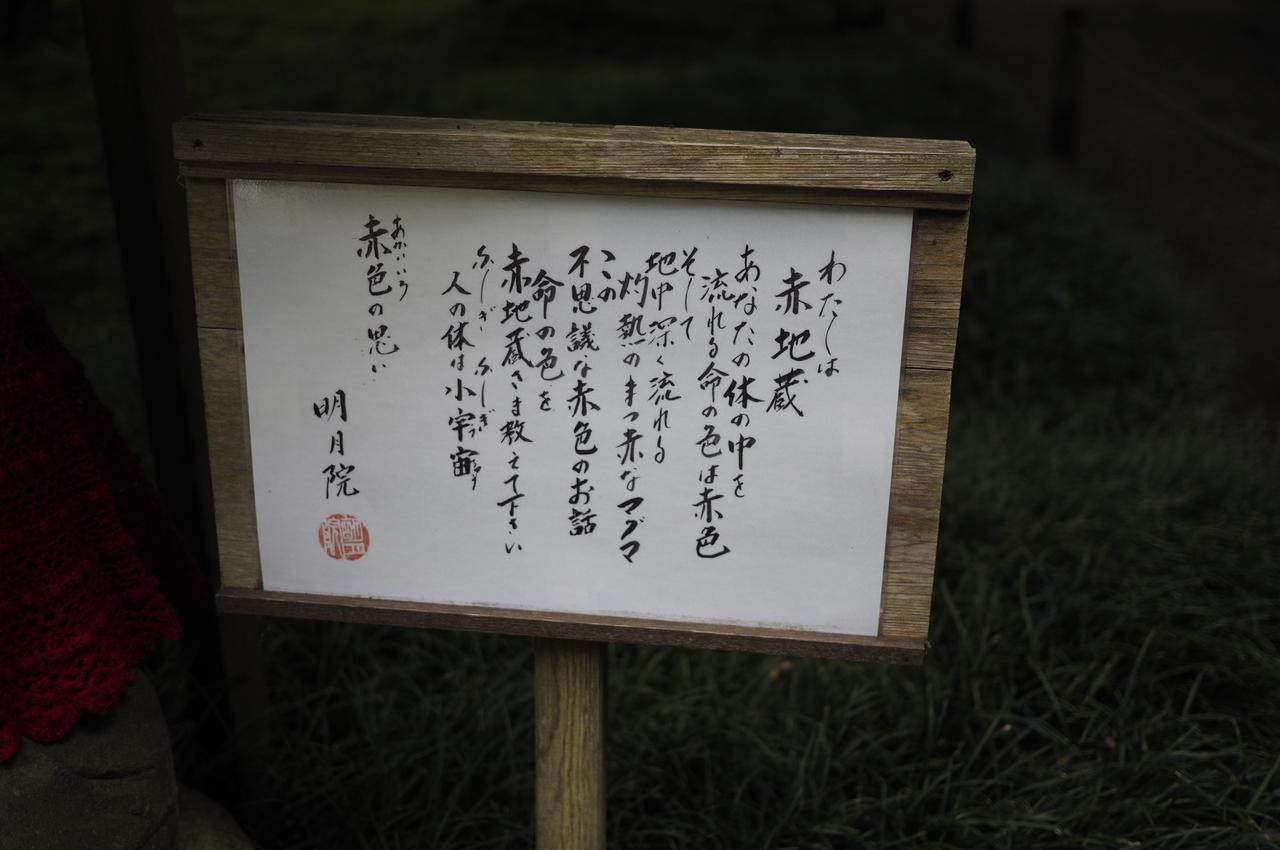 わたしは
赤地蔵
あなたの体の中を
流れる命の色は赤色
そして
地中深く流れる
灼熱のまっ赤なマグマ
この
不思議な赤色のお話
命の色を
赤地蔵さま教えて下さい
ふしぎ ふしぎ
人の体は小宇宙
赤色の思い
あかいいろ
明月院